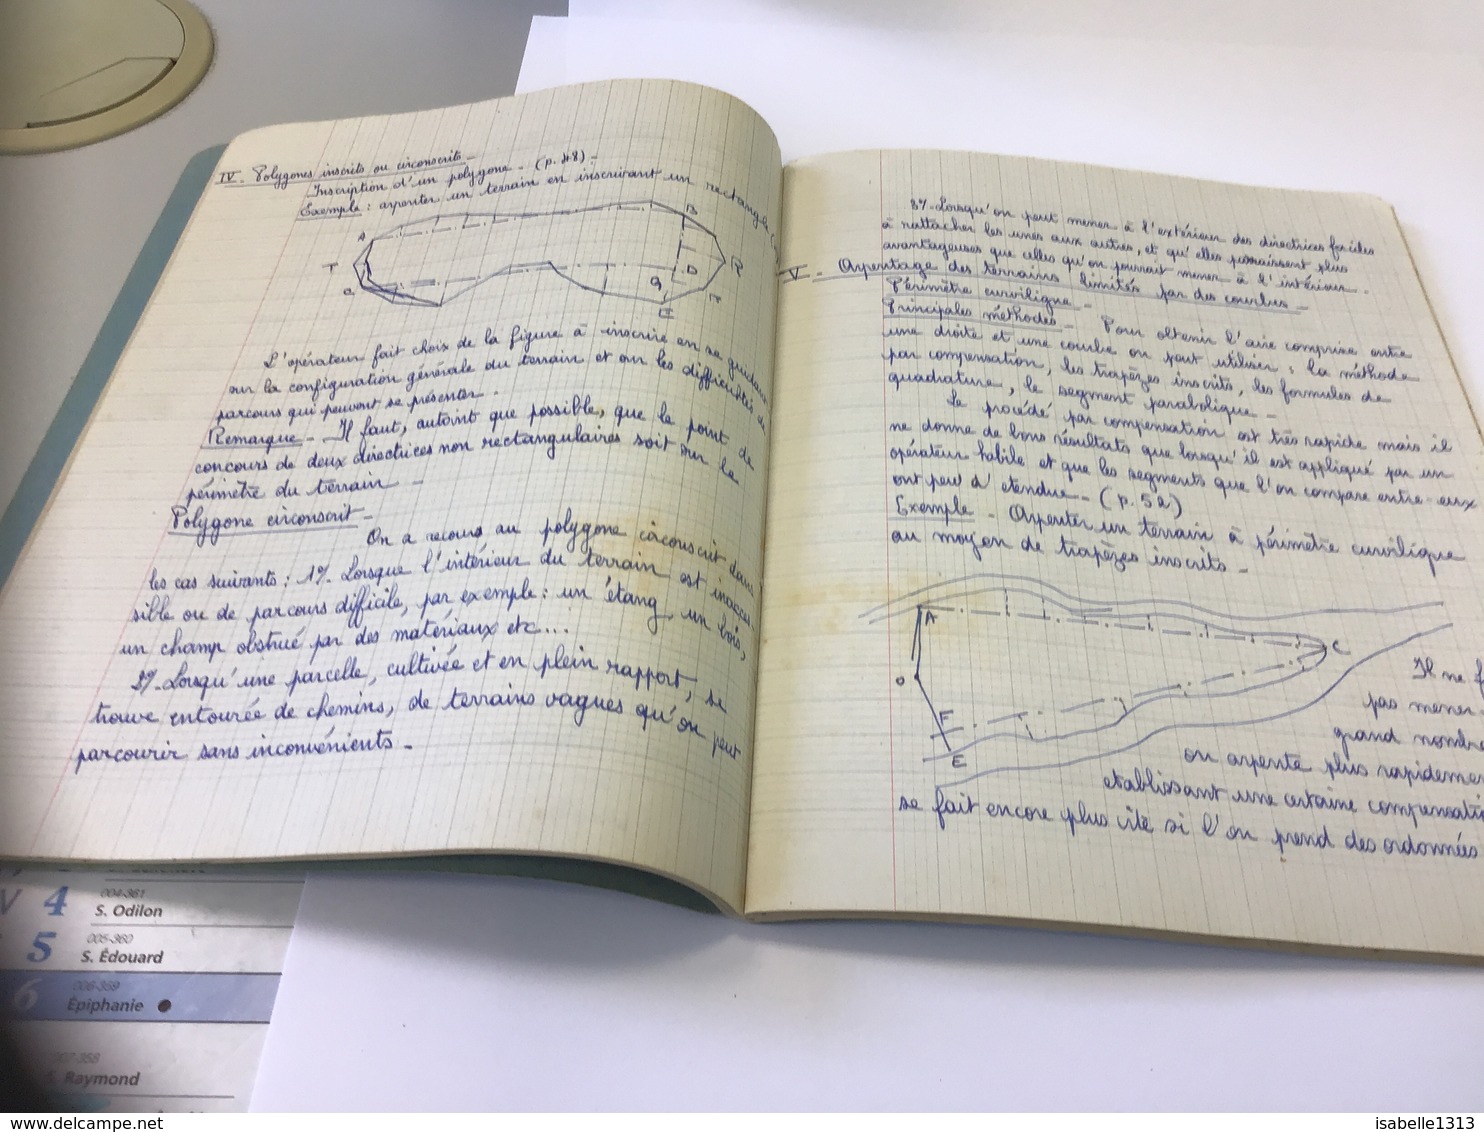 IV - Polygones inscrits ou circonscrits -
Inscription d'un polygone - (p. 48) -
Exemple : arpenter un terrain en inscrivant un rectangle
A
B
T
R
C
G
D
E
L'opérateur fait choix de la figure à inscrire en se guidant
sur la configuration générale du terrain et sur les difficultés de
parcours qui peuvent se présenter.
Remarque - Il faut, autant que possible, que le point de
concours de deux directrices non rectangulaires soit sur le
périmètre du terrain -
Polygone circonscrit -
On a recours au polygone circonscrit dans
les cas suivants : 1°/- Lorsque l'intérieur du terrain est inacces-
sible ou de parcours difficile, par exemple : un étang, un bois,
un champ obstrué par des matériaux etc...
2°/- Lorsqu'une parcelle, cultivée et en plein rapport, se
trouve entourée de chemins, de terrains vagues qu'on peut
parcourir sans inconvénients -
3°/- Lorsqu'on peut mener à l'extérieur des directrices faciles
à rattacher les unes aux autres, et qu'elles paraissent plus
avantageuses que celles qu'on pourrait mener à l'intérieur -
V - Arpentage des terrains limités par des courbes -
Périmètre curviligne -
Principales méthodes - Pour obtenir l'aire comprise entre
une droite et une courbe on peut utiliser : la méthode
par compensation, les trapèzes inscrits, les formules de
quadrature, le segment parabolique -
Le procédé par compensation est très rapide mais il
ne donne de bons résultats que lorsqu'il est appliqué par un
opérateur habile et que les segments que l'on compare entre eux
ont peu d'étendue - (p. 52)
Exemple - Arpenter un terrain à périmètre curviligne
au moyen de trapèzes inscrits -
A
C
O
F
E
Il ne f
pas mener
grand nombre
on arpente plus rapideme
établissant une certaine compensati
se fait encore plus vite si l'on prend des ordonnées
V 4 004-361
S. Odilon
5 005-360
S. Édouard
6 006-359
Épiphanie
007-358
S. Raymond
www.delcampe.net
isabelle1313